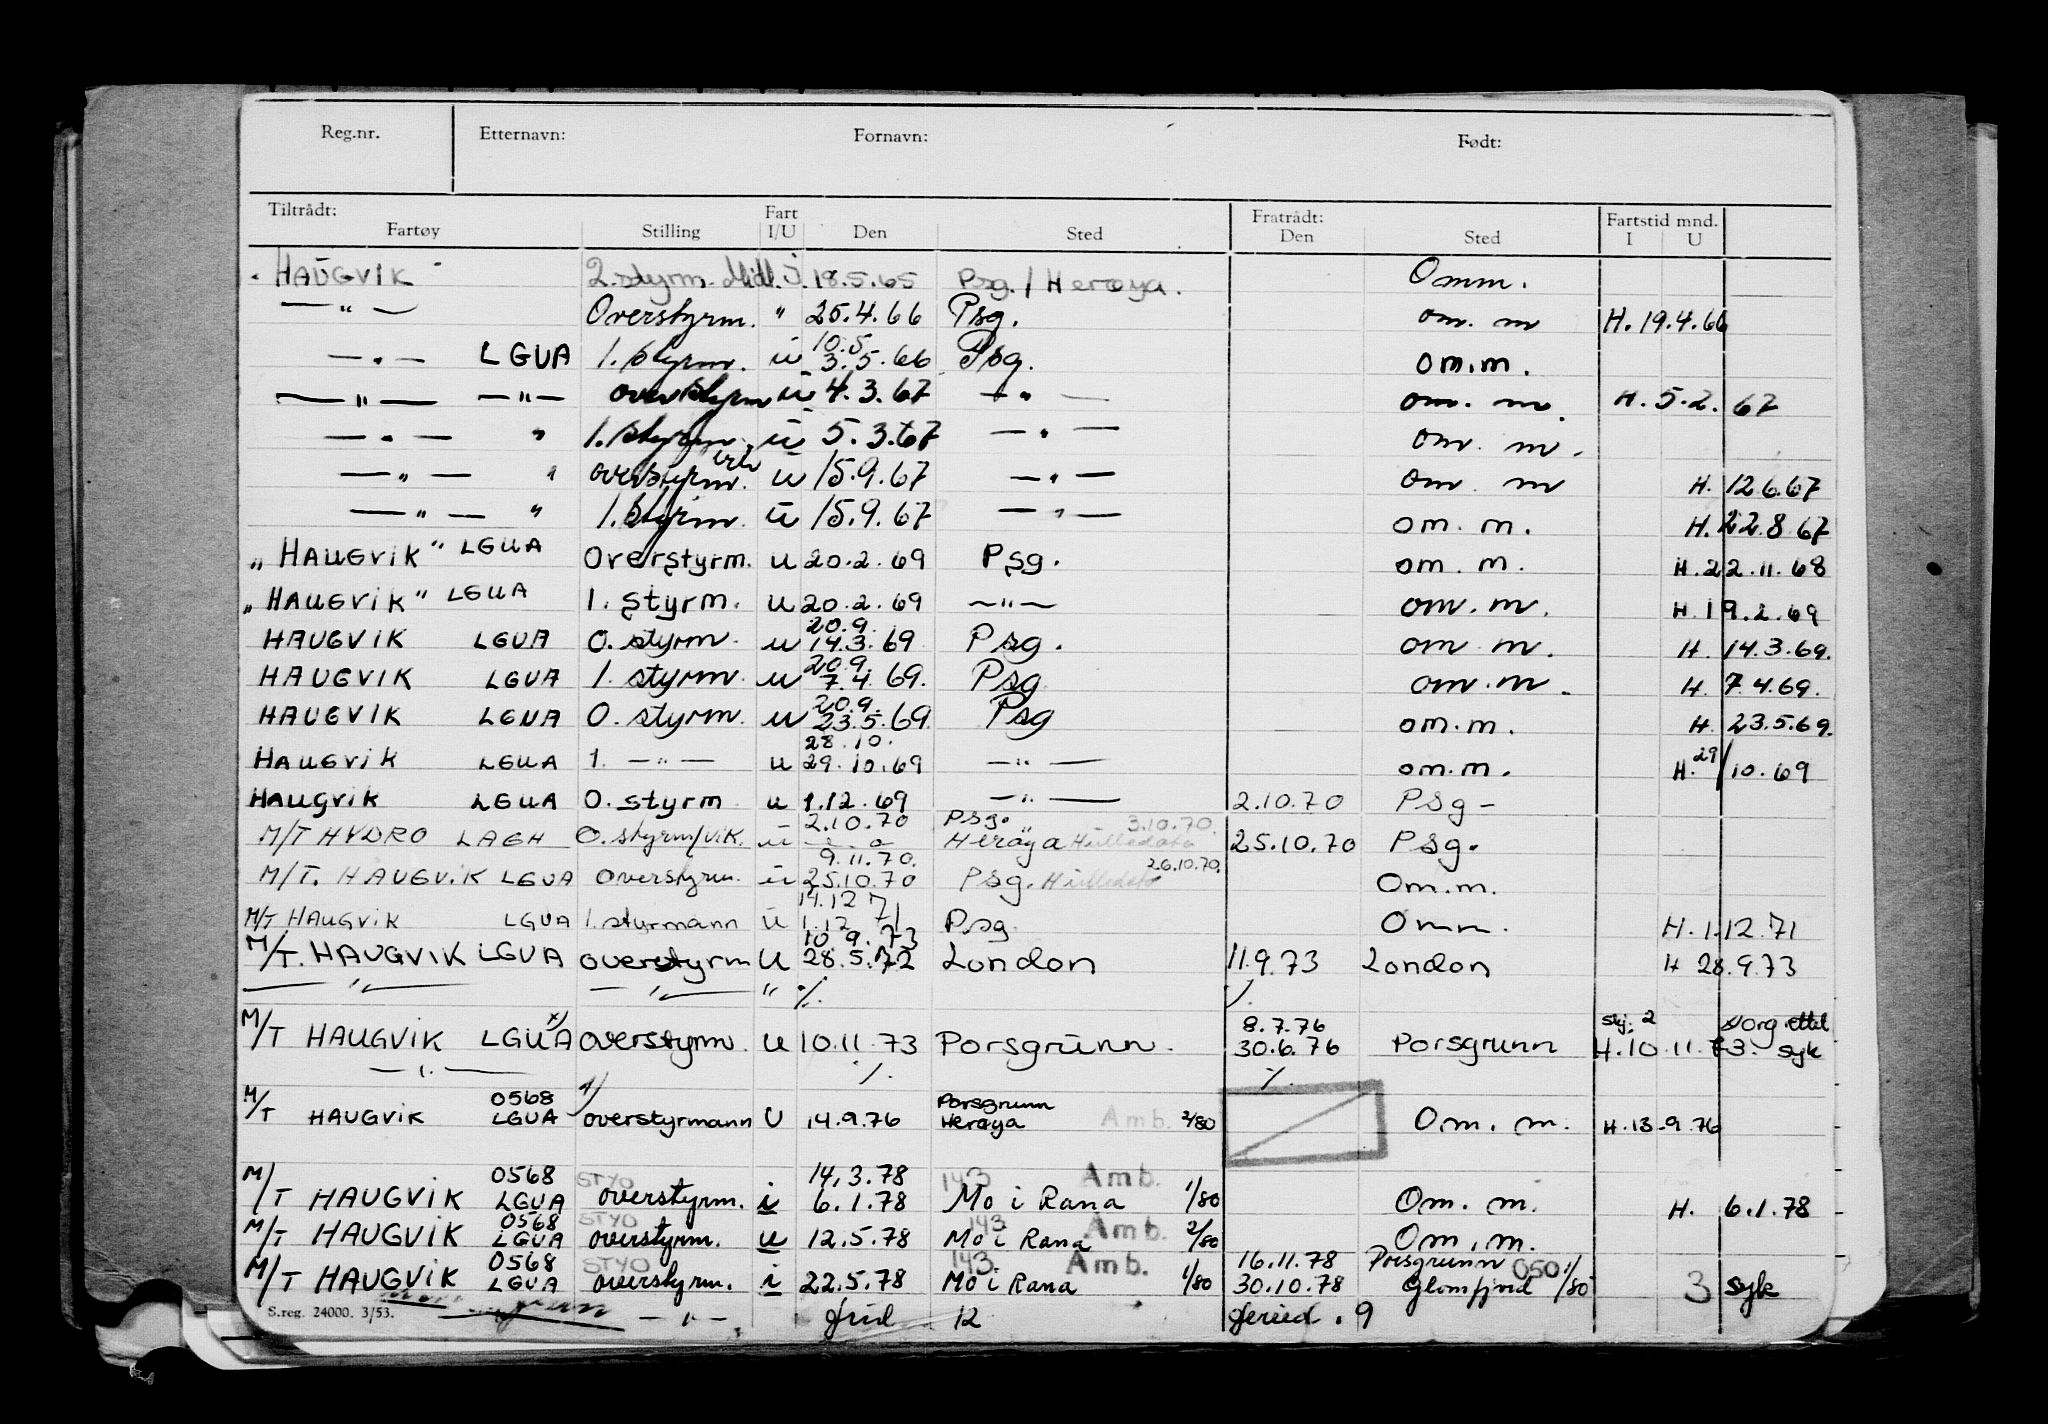 Reg.nr. Etternavn: Fornavn: Født:
Tiltrådt: Fart Fratrådt: Fartstid mnd.
Fartøy Stilling I/U Den Sted Den Sted I U
HAUGVIK 2.styrm. Midl. i 18.5.65 Psg./Herøya. Omm.
—"— Overstyrm. " 25.4.66 Psg. om. m H. 19.4.66
10.5
—"— LGUA 1. styrm. u 3.5.66 Psg. om.m.
—"— —"— overstyrm u 4.3.67 —"— om. m. H. 5.2.67
—"— " 1. styrm. u 5.3.67 —"— om. m.
—"— " overstyrm. u 15.9.67 —"— om. m H. 12.6.67
—"— " 1. styrm. u 15.9.67 —"— om. m. H. 22.8.67
"HAUGVIK" LGUA Overstyrm. u 20.2.69 Psg. om. m. H. 22.11.68
"HAUGVIK" LGUA 1. styrm. u 20.2.69 —"— om. m. H. 19.2.69
20.9.
HAUGVIK LGUA O. styrm. u 14.3.69 Psg. om m. H. 14.3.69.
20.9.
HAUGVIK LGUA 1. styrm. u 7.4.69. Psg om. m. H. 7.4.69.
20.9.
HAUGVIK LGUA O. styrm. u 23.5.69. Psg om.m. H. 23.5.69.
28.10.
HAUGVIK LGUA 1. —"— u 29.10.69 —"— om.m. H. 29/10.69
HAUGVIK LGUA O. styrm u 1.12.69 —"— 2.10.70 Psg-
2.10.70 Psg. 3.10.70.
M/T HYDRO LAGH O.styrm/vik. u —"— Herøya Hulledato 25.10.70 Psg.
9.11.70. 26.10.70.
M/T. HAUGVIK LGUA Overstyrm. u 25.10.70 Psg. Hulledato Om.m.
14.12.71
M/T HAUGVIK LGUA 1. styrmann u 1.12.71 Psg. Omm. H. 1.12.71
10.9.73
M/T. HAUGVIK LGUA overstyrm u 28.5.72 London 11.9.73 London H 28.9.73
—"— —"— " %. %.
x) 8.7.76 sj. 2 sorg ettel
M/T HAUGVIK LGUA overstyrm. u 10.11.73 Porsgrunn. 30.6.76 Porsgrunn H. 10.11.73. syk
—"— %. %.
0568 Porsgrunn
M/T HAUGVIK LGUA overstyrmann U 14.9.76 Herøya Amb. 2/80 Om. m. H. 13.9.76
0568 STYO 14.3.78 143 Amb.
M/T HAUGVIK LGUA overstyrm. i 6.1.78 Mo i Rana 1/80 Om. m. H. 6.1.78
0568 STYO 143 Amb.
M/T HAUGVIK LGUA overstyrm. u 12.5.78 Mo i Rana 2/80 Om. m.
0568 STYO 143 Amb. 16.11.78 Porsgrunn 0501
M/T HAUGVIK LGUA overstyrm. i 22.5.78 Mo i Rana 1/80 30.10.78 Glomfjord 1/80 3 syk
S.reg. 24000. 3/53. —"— 12 9